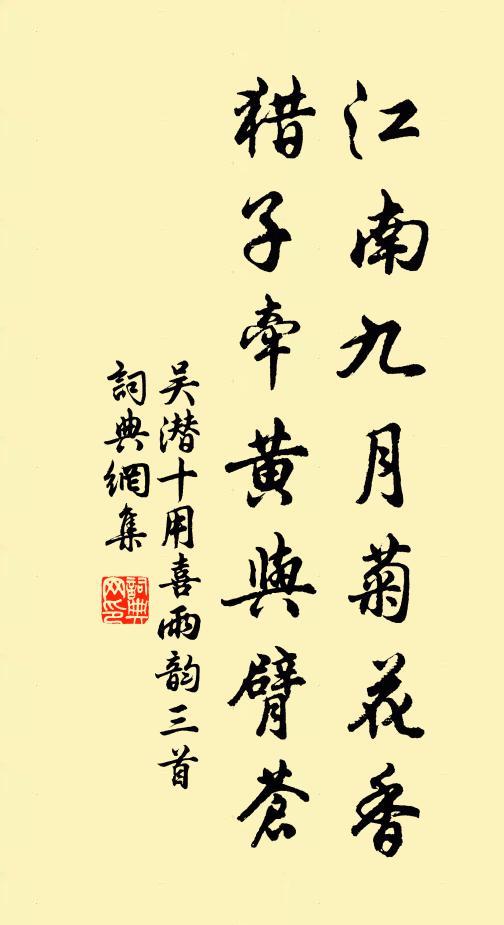 江南九月菊花香
猎子牽黄與臂蒼
吴潜十用喜雨韵三首
詞典網集
詞典網印